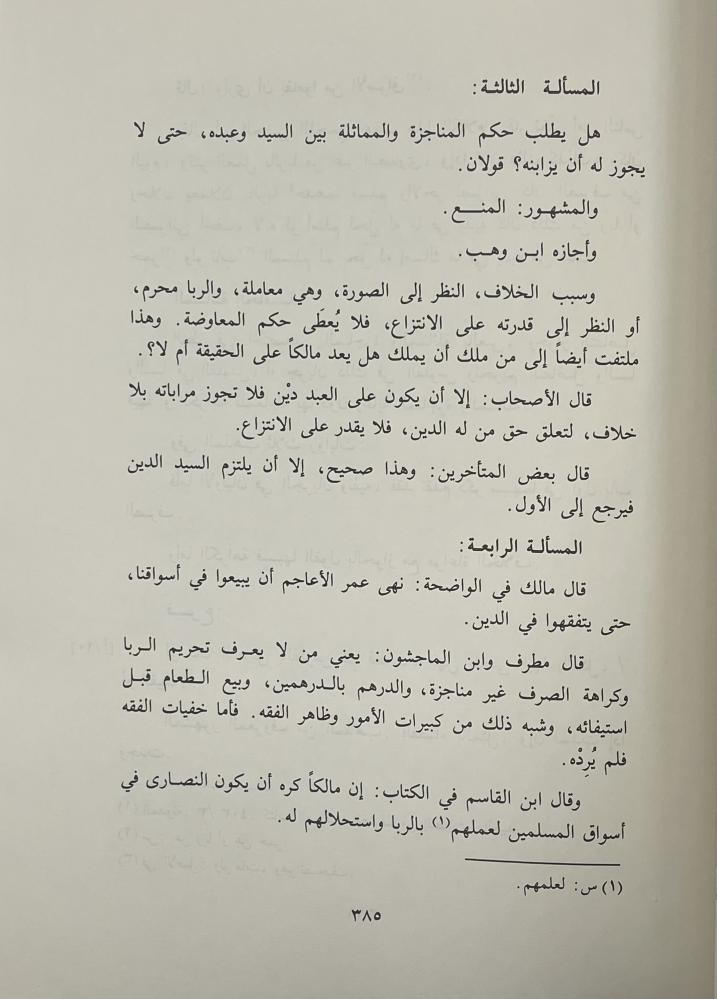 المسألة الثالثة:
هل يطلب حكم المناجزة والمماثلة بين السيد وعبده، حتى لا
يجوز له أن يزابنه؟ قولان.
والمشهور: المنع.
وأجازه ابن وهب.
وسبب الخلاف، النظر إلى الصورة، وهي معاملة، والربا محرم،
أو النظر إلى قدرته على الانتزاع، فلا يُعطَى حكم المعاوضة. وهذا
ملتفت أيضاً إلى من ملك أن يملك هل يعد مالكاً على الحقيقة أم لا؟.
قال الأصحاب: إلا أن يكون على العبد ديْن فلا تجوز مراباته بلا
خلاف، لتعلق حق من له الدين، فلا يقدر على الانتزاع.
قال بعض المتأخرين: وهذا صحيح، إلا أن يلتزم السيد الدين
فيرجع إلى الأول.
المسألة الرابعة:
قال مالك في الواضحة: نهى عمر الأعاجم أن يبيعوا في أسواقنا،
حتى يتفقهوا في الدين.
قال مطرف وابن الماجشون: يعني من لا يعرف تحريم الربا
وكراهة الصرف غير مناجزة، والدرهم بالدرهمين، وبيع الطعام قبل
استيفائه، وشبه ذلك من كبيرات الأمور وظاهر الفقه. فأما خفيات الفقه
فلم يُرِدْه.
وقال ابن القاسم في الكتاب: إن مالكاً كره أن يكون النصارى في
أسواق المسلمين لعملهم(١) بالربا واستحلالهم له.
(١) س: لعلمهم.
٣٨٥